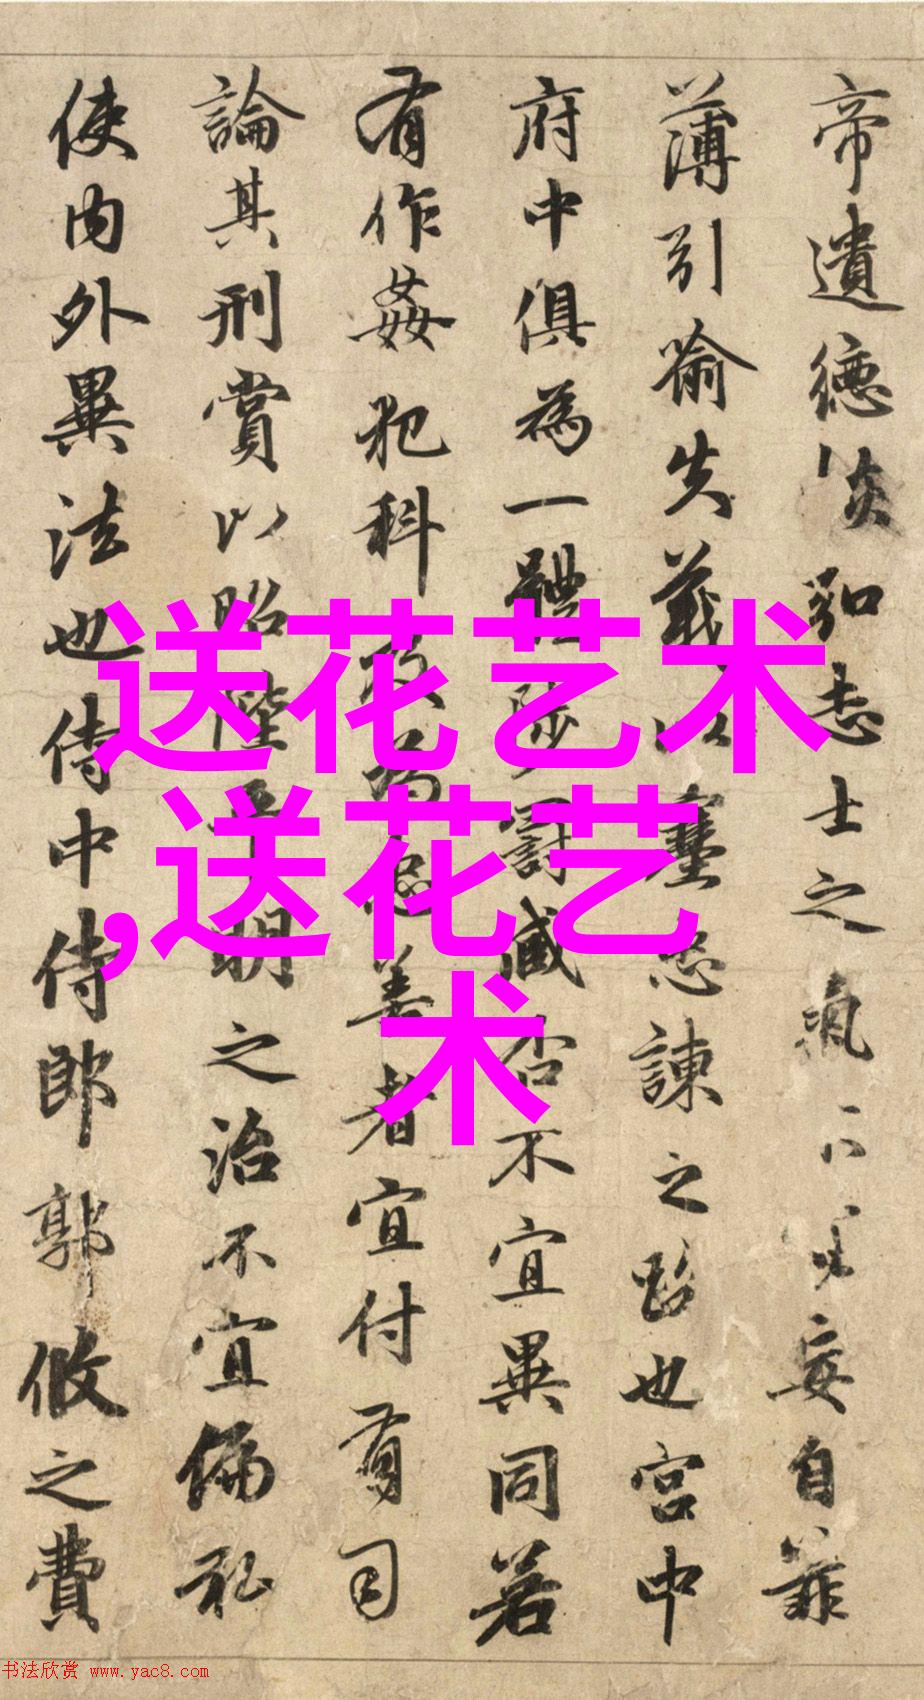 帝遺德恢弘志士之氣妄自菲
薄引喻失義以塞忠諫之路也宮中
府中俱為一體陟罰臧否不宜異同若
有作姦犯科及為忠善者宜付有司
論其刑賞以昭陛平明之治不宜偏私
使內外異法也侍中侍郎郭攸之費
送花艺术
,送花艺
术
书法欣赏 www.yac8.com